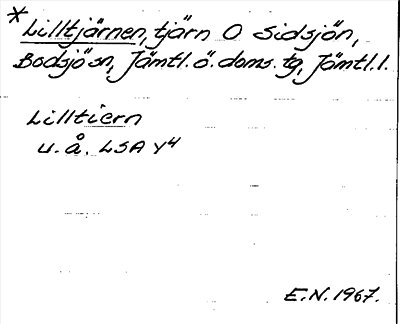 * Lilltjärnen, tjärn O Sidsjön,
Bodsjö sn, Jämtl. ö. doms. tg, Jämtl. l.
Lilltiern
u. å. LSA Y4
E.N. 1967.